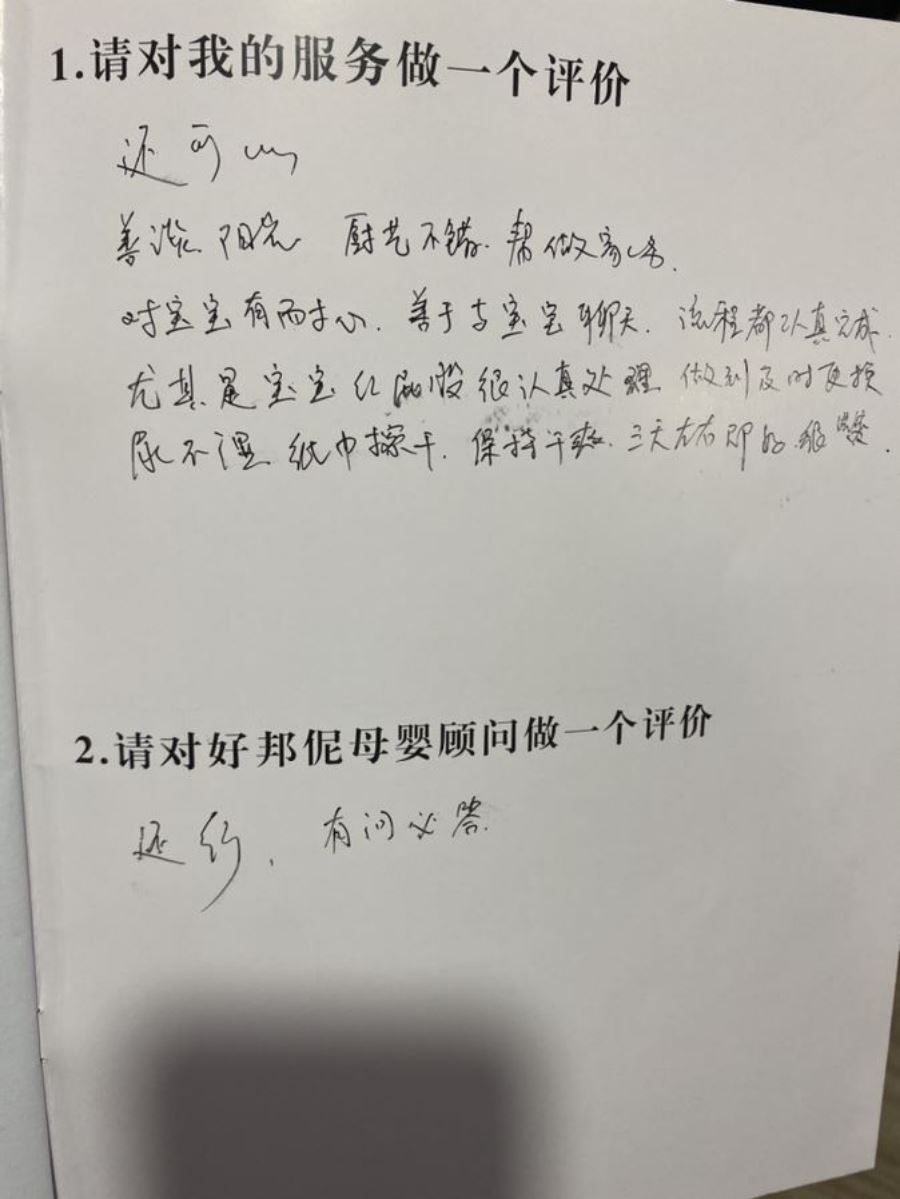 1.请对我的服务做一个评价
还可以
善谈 阳光 厨艺不错.帮做家务.
对宝宝有耐心.善于与宝宝聊天.流程都认真完成.
尤其是宝宝红屁股很认真处理 做到及时更换
尿不湿 纸巾擦干.保持干爽.三天左右即好.很赞.
2.请对好邦伲母婴顾问做一个评价
还行,有问必答.